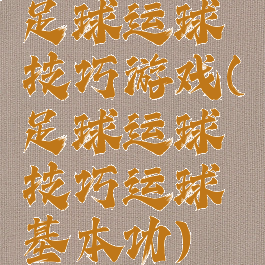 足球运球
技巧游戏(
足球运球
技巧运球
基本功)